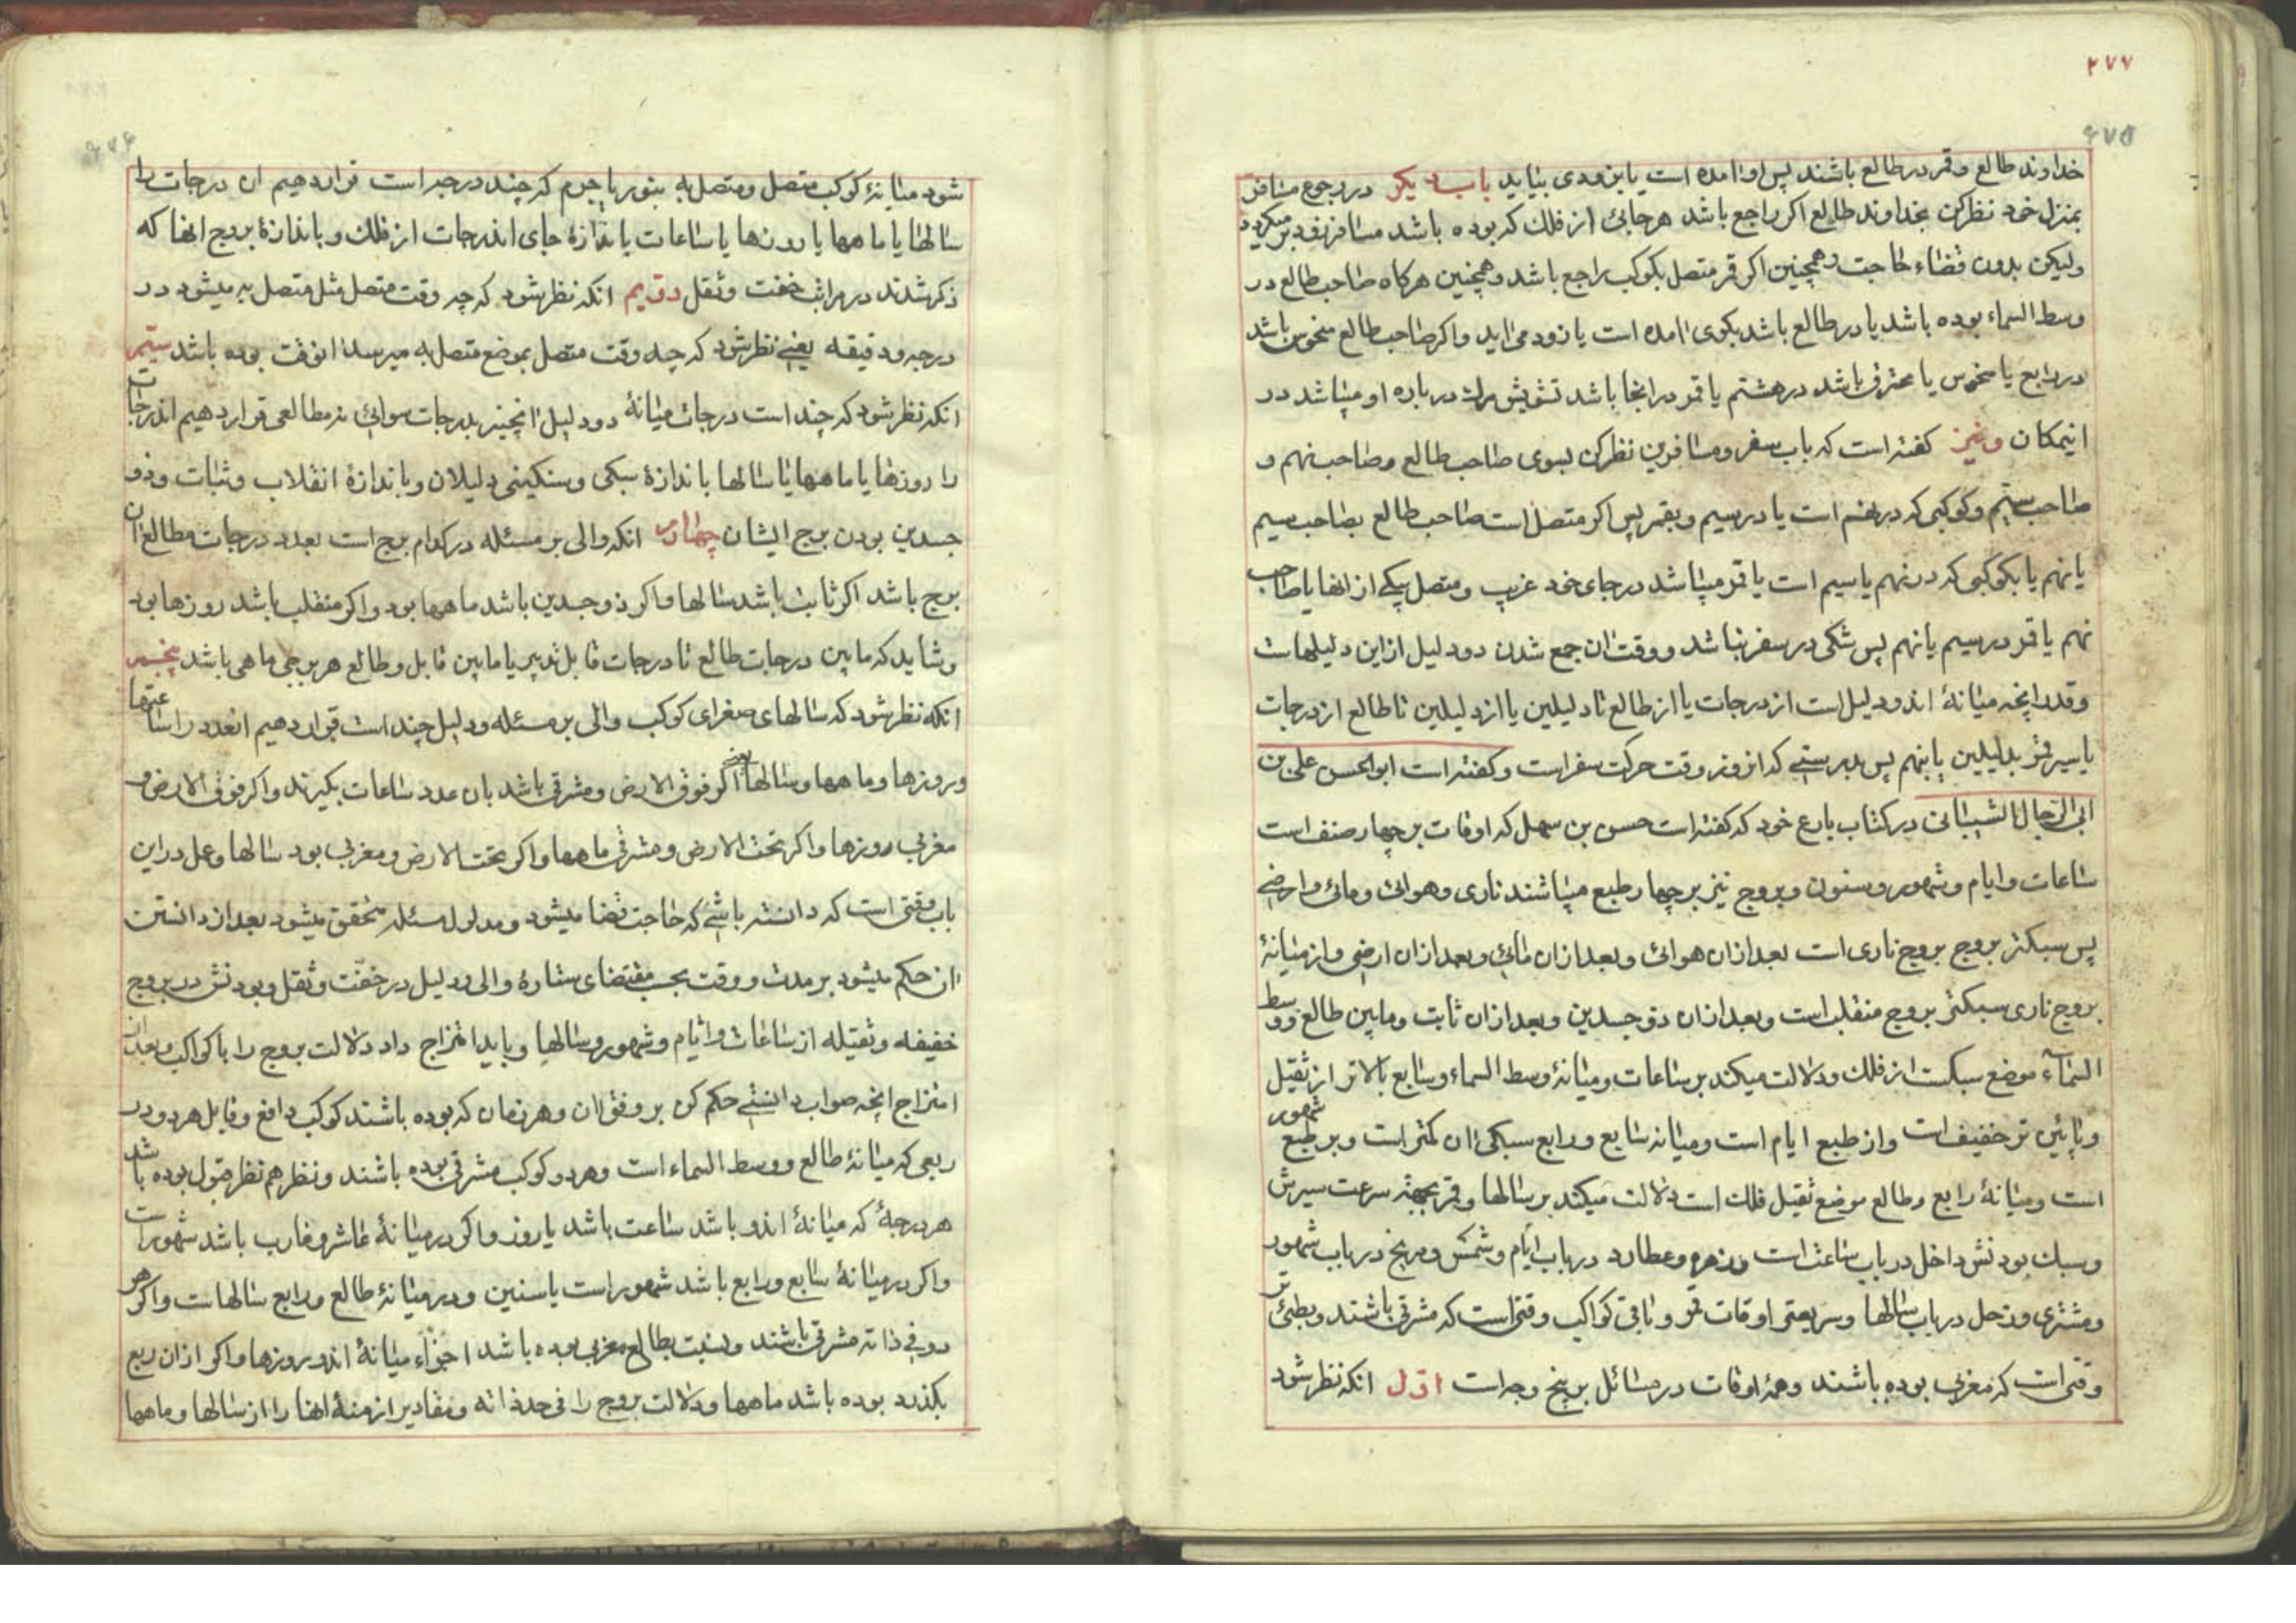 ۲۷۷
۶۷۵
خداوند طالع و قمر در طالع باشند پس او آمده است یا بزودی بیاید باب دیگر در رجوع مسافر
بمنزل خود نظر کن بخداوند طالع اکر راجع باشد هر جائی از فلک که بوده باشد مسافر زود بر میکردد
ولیکن بدون قضاء حاجت و همچنین اکر قمر متصل بکوکب راجع باشد و همچنین هرکاه صاحب طالع در
وسط السماء بوده باشد یا در طالع باشد بکوی آمده است یا زود می اید و اکر صاحب طالع منحوس باشد
در رابع یا منحوس یا محترق باشد در هشتم یا قمر در انجا باشد تشویش مرک در باره او میباشد در
انمکان و نیز کفته است که باب سفر و مسافرین نظر کن بسوی صاحب طالع و صاحب نهم و
صاحب سیّم و کوکبی که در نهم است یا در سیم و بقمر پس اکر متصل است صاحب طالع بصاحب سیم
یا نهم یا بکوکبی که در نهم یا سیم است یا قمر میباشد در جای خود غریب و متصل بیکی از انها یا صاحب
نهم یا قمر در سیم یا نهم پس شکی در سفر نباشد و وقت ان جمع شدن دو دلیل از این دلیلهاست
و قدر انچه میانهٔ اندو دلیل است از درجات یا از طالع تا دلیلین یا از دلیلین تا طالع از درجات
یا سیر قمر بدلیلین یا بنهم پس بدرستی که انروز وقت حرکت سفر است و کفته است ابو الحسن علی بن
ابی الرّجال الشیبانی در کتاب بارع خود که کفته است حسن بن سهل که اوقات بر چهار صنف است
ساعات و ایام و شهور و سنون و بروج نیز بر چهار طبع میباشند ناری و هوائی و مائی و ارضی
پس سبکتر بروج بروج ناری است بعد از ان هوائی و بعد از ان مائی و بعد از ان ارضی و از میانهٔ
بروج ناری سبکتر بروج منقلب است و بعد از ان ذو جسدین و بعد از ان ثابت و مابین طالع و وسط
السّماء موضع سبکست از فلک و دلالت میکند بر ساعات و میانهٔ وسط السماء و سابع بالاتر از ثقیل
و پائین تر خفیف است و از طبع ایام است و میانه سابع و رابع سبکی ان کمتر است و بر طبع شهور
است و میانهٔ رابع و طالع موضع ثقیل فلک است دلالت میکند بر سالها و قمر بجهة سرعت سیرش
و سبک بودنش داخل در باب ساعت است و زهره و عطارد در باب ایّام و شمس و مریخ در باب شهور
و مشتری و زحل در باب سالها و سریعتر اوقات قمر و باقی کواکب وقتی است که مشرقی باشند و بطئی تر
وقتی است که مغربی بوده باشند و همهٔ اوقات در مسائل بر پنج وجه است اوّل انکه نظر شود
۶۷۶
شود میانهٔ کوکب متصل و متصل به بنور یا جرم که چند درجه است قرار دهیم ان درجات را
سالها یا ماهها یا روزها یا ساعات باندازهٔ جای اندرجات از فلک و باندازهٔ بروج انها که
ذکر شدند در مراتب خفت و ثقل دوّیم انکه نظر شود که چه وقت متصل مثل متصل به میشود در
درجه و دقیقه یعنی نظر شود که چه وقت متصل بموضع متصل به میرسد انوقت بوده باشد سیّم
انکه نظر شود که چند است درجات میانهٔ دو دلیل انچنین بدرجات سوائی نه مطالعی قرار دهیم اندرجات
را روزها یا ماهها یا سالها باندازهٔ سبکی و سنکینی دلیلان و باندازهٔ انقلاب و ثبات و ذو
جسدین بودن برج ایشان چهارم انکه والی بر مسئله در کدام برج است بعدد درجات مطالع ان
برج باشد اکر ثابت باشد سالها و اکر ذو جسدین باشد ماهها بود و اکر منقلب باشد روزها بود
و شاید که مابین درجات طالع تا درجات قابل تدبیر یا مابین قابل و طالع هر برجی ماهی باشد پنجم
انکه نظر شود که سالهای صغرای کوکب والی بر مسئله و دلیل چند است قرار دهیم انعدد را ساعتها
و روزها و ماهها و سالها یعنی اکر فوق الارض و مشرقی باشد بان عدد ساعات بکیرند و اکر فوق الارض و
مغربی روزها و اکر تحت الارض و مشرقی ماهها و اکر تحت الارض و مغربی بود سالها و عمل در این
باب وقتی است که دانسته باشی که حاجت قضا میشود و مدلول مسئله متحقق میشود بعد از دانستن
ان حکم میشود بر مدت و وقت بحسب مقتضای ستارهٔ والی و دلیل در خفّت و ثقل و بودنش در بروج
خفیفه و ثقیله از ساعات و ایّام و شهور و سالها و باید امتزاج داد دلالت بروج را با کواکب و بعد از
امتزاج انچه صواب دانستی حکم کن بر وفق ان و هر زمان که بوده باشند کوکب دافع و قابل هر دو در
ربعی که میانهٔ طالع و وسط السماء است و هر دو کوکب مشرقی بوده باشند و نظرهم نظر قبول بوده باشد
هر درجهٔ که میانهٔ اندو باشد ساعت باشد یا روز و اکر در میانهٔ عاشر و غارب باشد شهور است
و اکر در میانهٔ سابع و رابع باشد شهور است یا سنین و در میانهٔ طالع و رابع سالهاست و اکر هر
دو فی ذاته مشرقی باشند و نسبت بطالع مغربی بوده باشد اجزاء میانهٔ اندو روزها و اکر از ان ربع
بکذرد بوده باشد ماهها و دلالت بروج را فی حد ذاته و مقادیر ازمنهٔ انها را از سالها و ماهها